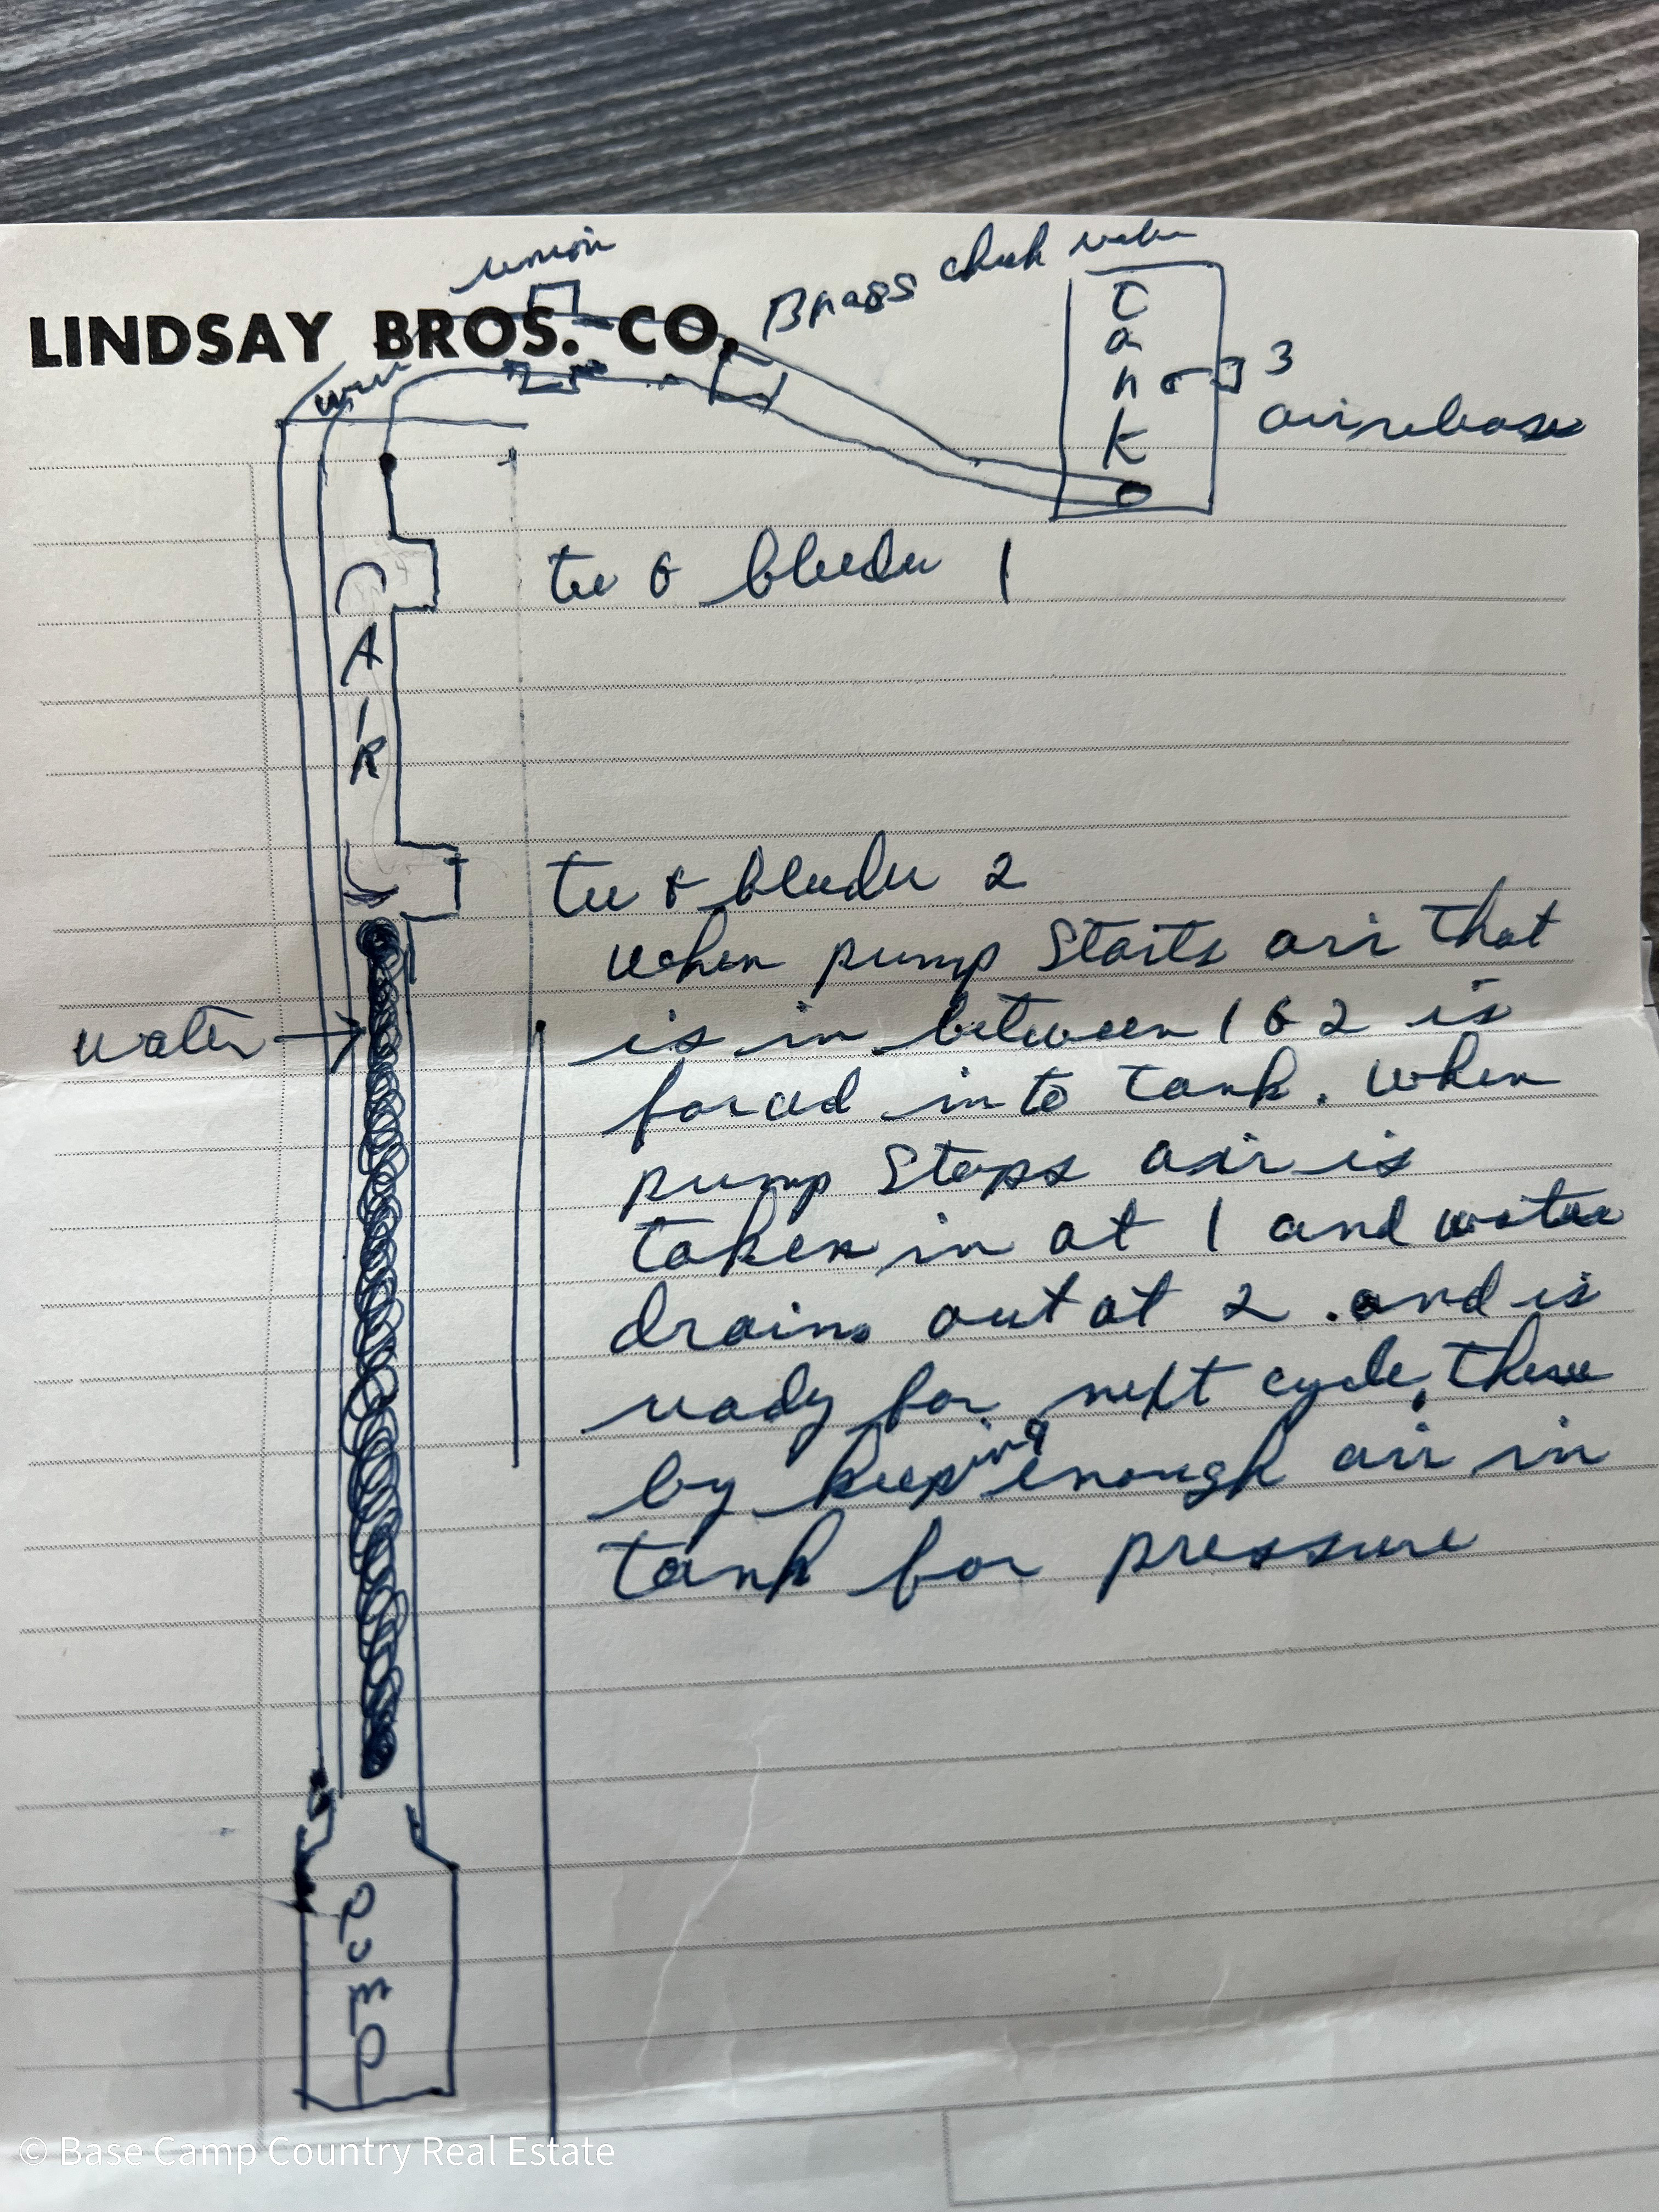 union
Brass check valve
LINDSAY BROS. CO.
wire
Tank
3
air release
tee & bleeder 1
AIR
tee & bleeder 2
When pump Starts air that
is in between 1 & 2 is
water
forced into tank. When
pump Stops air is
taken in at 1 and water
drains out at 2. and is
ready for next cycle. there
by keeping enough air in
tank for pressure
PUMP
© Base Camp Country Real Estate